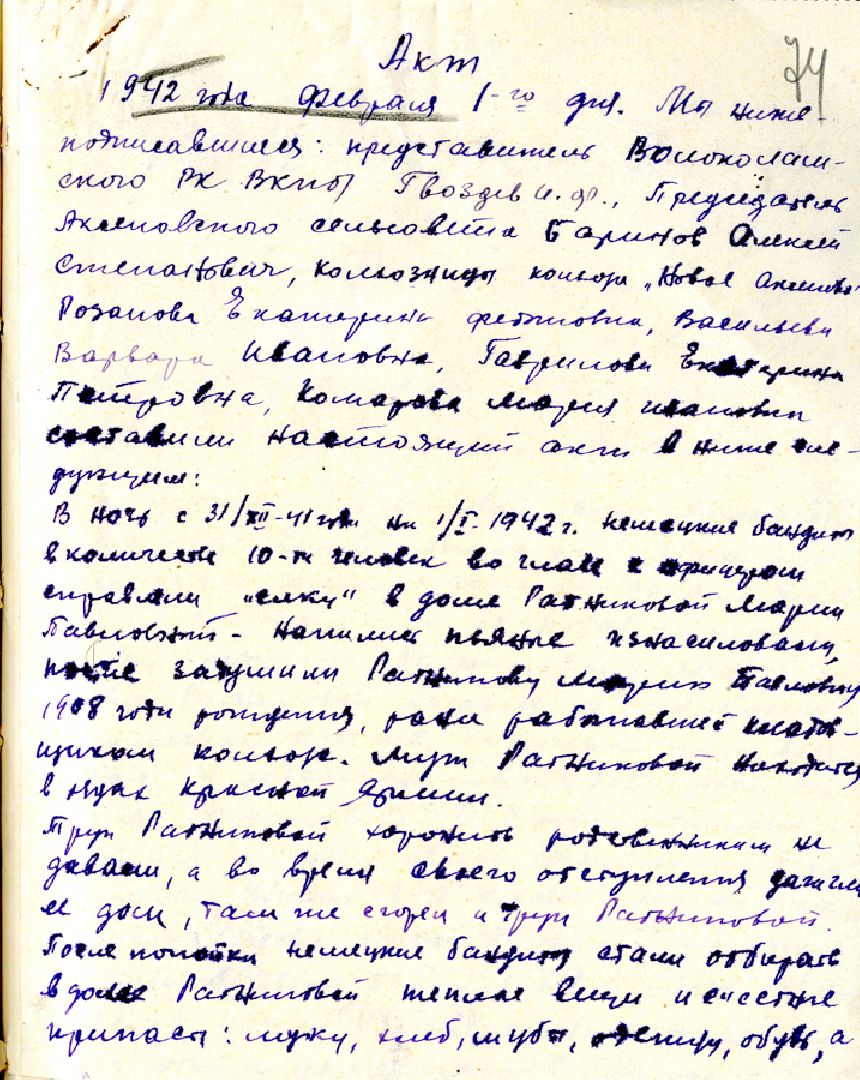 Акт
74
1942 года февраля 1-го дня. Мы ниже-
подписавшиеся: представитель Волоколам-
ского РК ВКП(б) Гвоздев И.Ф., Председатель
Аксеновского сельсовета Баринов Алексей
Степанович, колхозницы колхоза „Новое Аксеново"
Розанова Екатерина Васильева
Варвара Ивановна, Гаврилова Екатерина
Петровна, Комарова Мария Ивановна
составили настоящий акт в ниже сле-
дующем:
В ночь с 31/XII-41 года на 1/I-1942 г. немецкие бандиты
в количестве 10-ти человек во главе с офицером
справляли „елку" в доме Ратниковой Марии
Павловной - напились пьяные изнасиловали,
после задушили Ратникову Марию Павловну
1908 года рождения, ранее работавшей кладов-
щиком колхоза. Муж Ратниковой находится
в рядах Красной Армии.
Труп Ратниковой хоронить родственникам не
давали, а во время своего отступления зажгли
ее дом, там же сгорел и труп Ратниковой.
После попойки немецкие бандиты стали отбирать
в доме Ратниковой теплые вещи и съестные
припасы: муку, хлеб, шубы, одежду, обувь, а